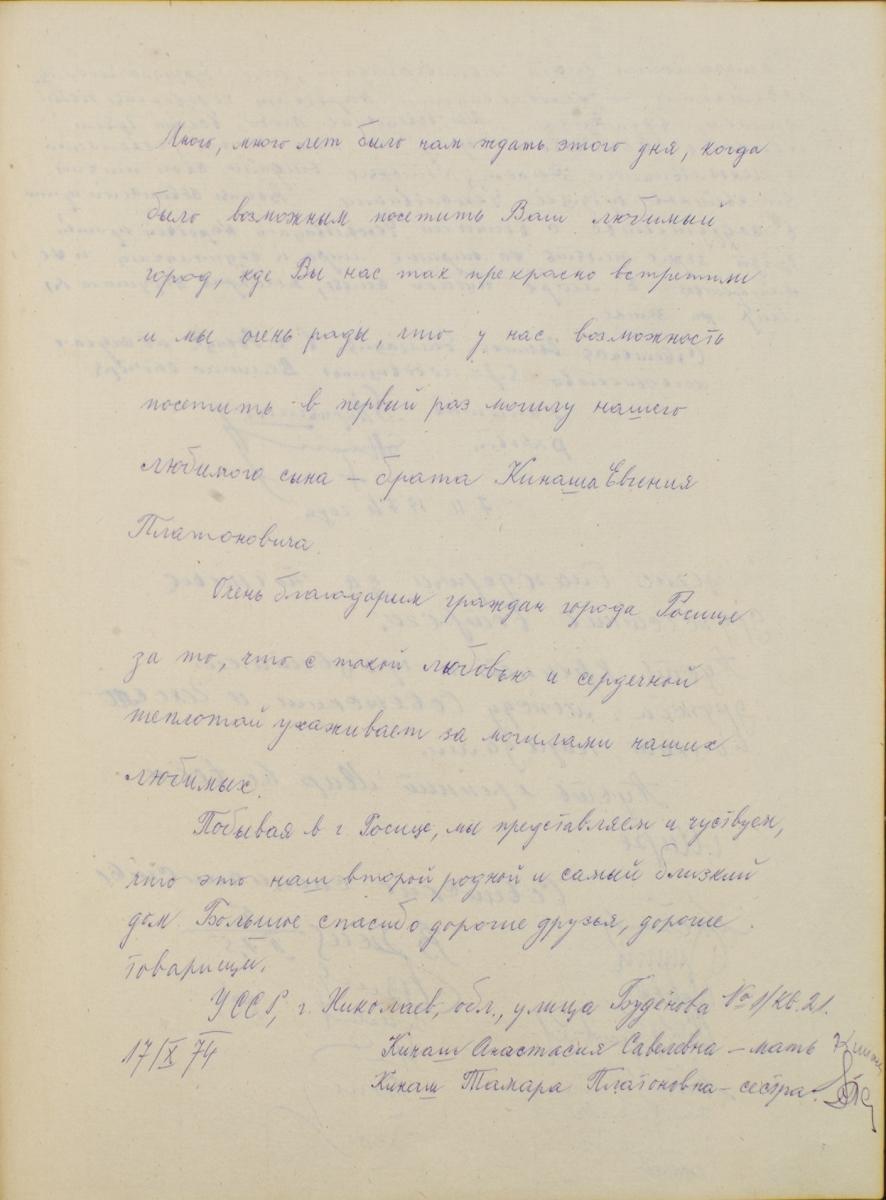 Много, много лет было нам ждать этого дня, когда
было возможным посетить Ваш любимый
город, где Вы нас так прекрасно встретили
и мы очень рады, что у нас возможность
посетить в первый раз могилу нашего
любимого сына – брата Кинаша Евгения
Платоновича.
Очень благодарим граждан города Росице
за то, что с такой любовью и сердечной
теплотай ухаживает за могилами наших
любимых.
Побывая в г. Росице, мы представляем и чуствуем,
что это наш второй родной и самый близкий
дом. Большое спасибо дорогие друзья, дорогие
товарищи.
УССР, г. Николаев, обл., улица Будёнова № 1/кв. 21.
17/X 74 Кинаш Анастасия Савелевна – мать
Кинаш Тамара Платоновна – сестра.